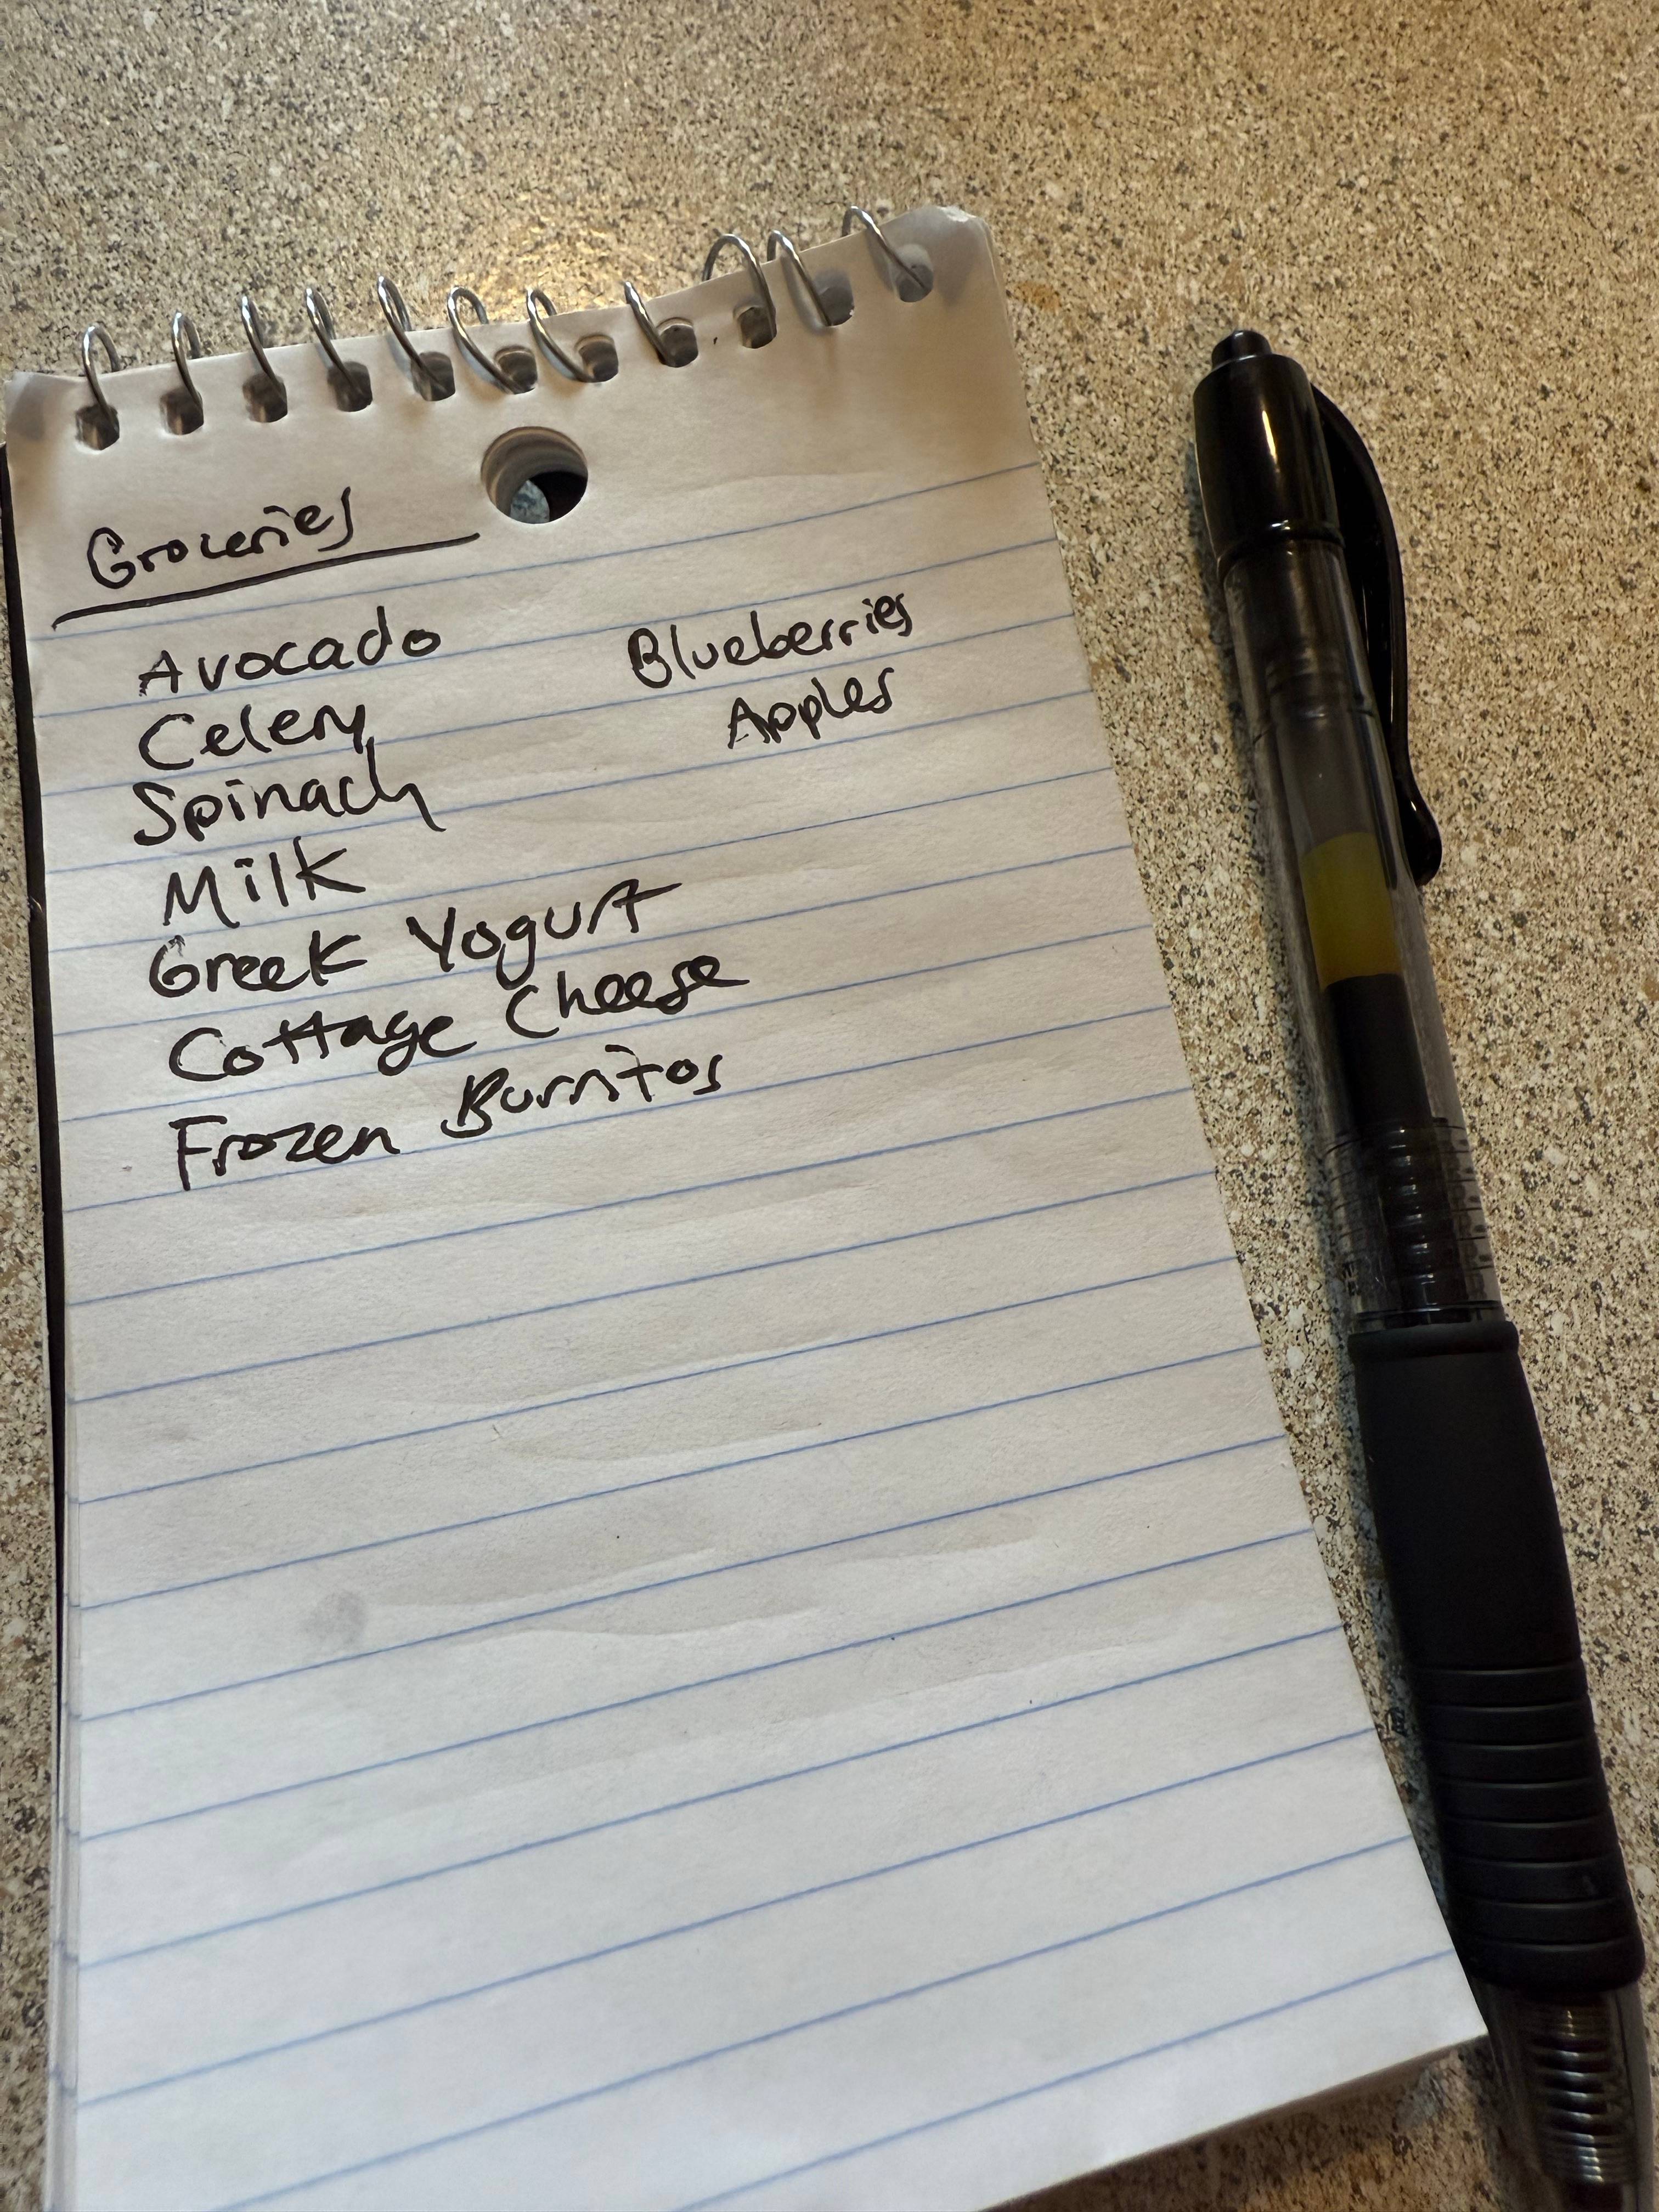 Groceries
Avocado
Celery
Spinach
Milk
Greek Yogurt
Cottage Cheese
Frozen Burritos
Blueberries
Apples